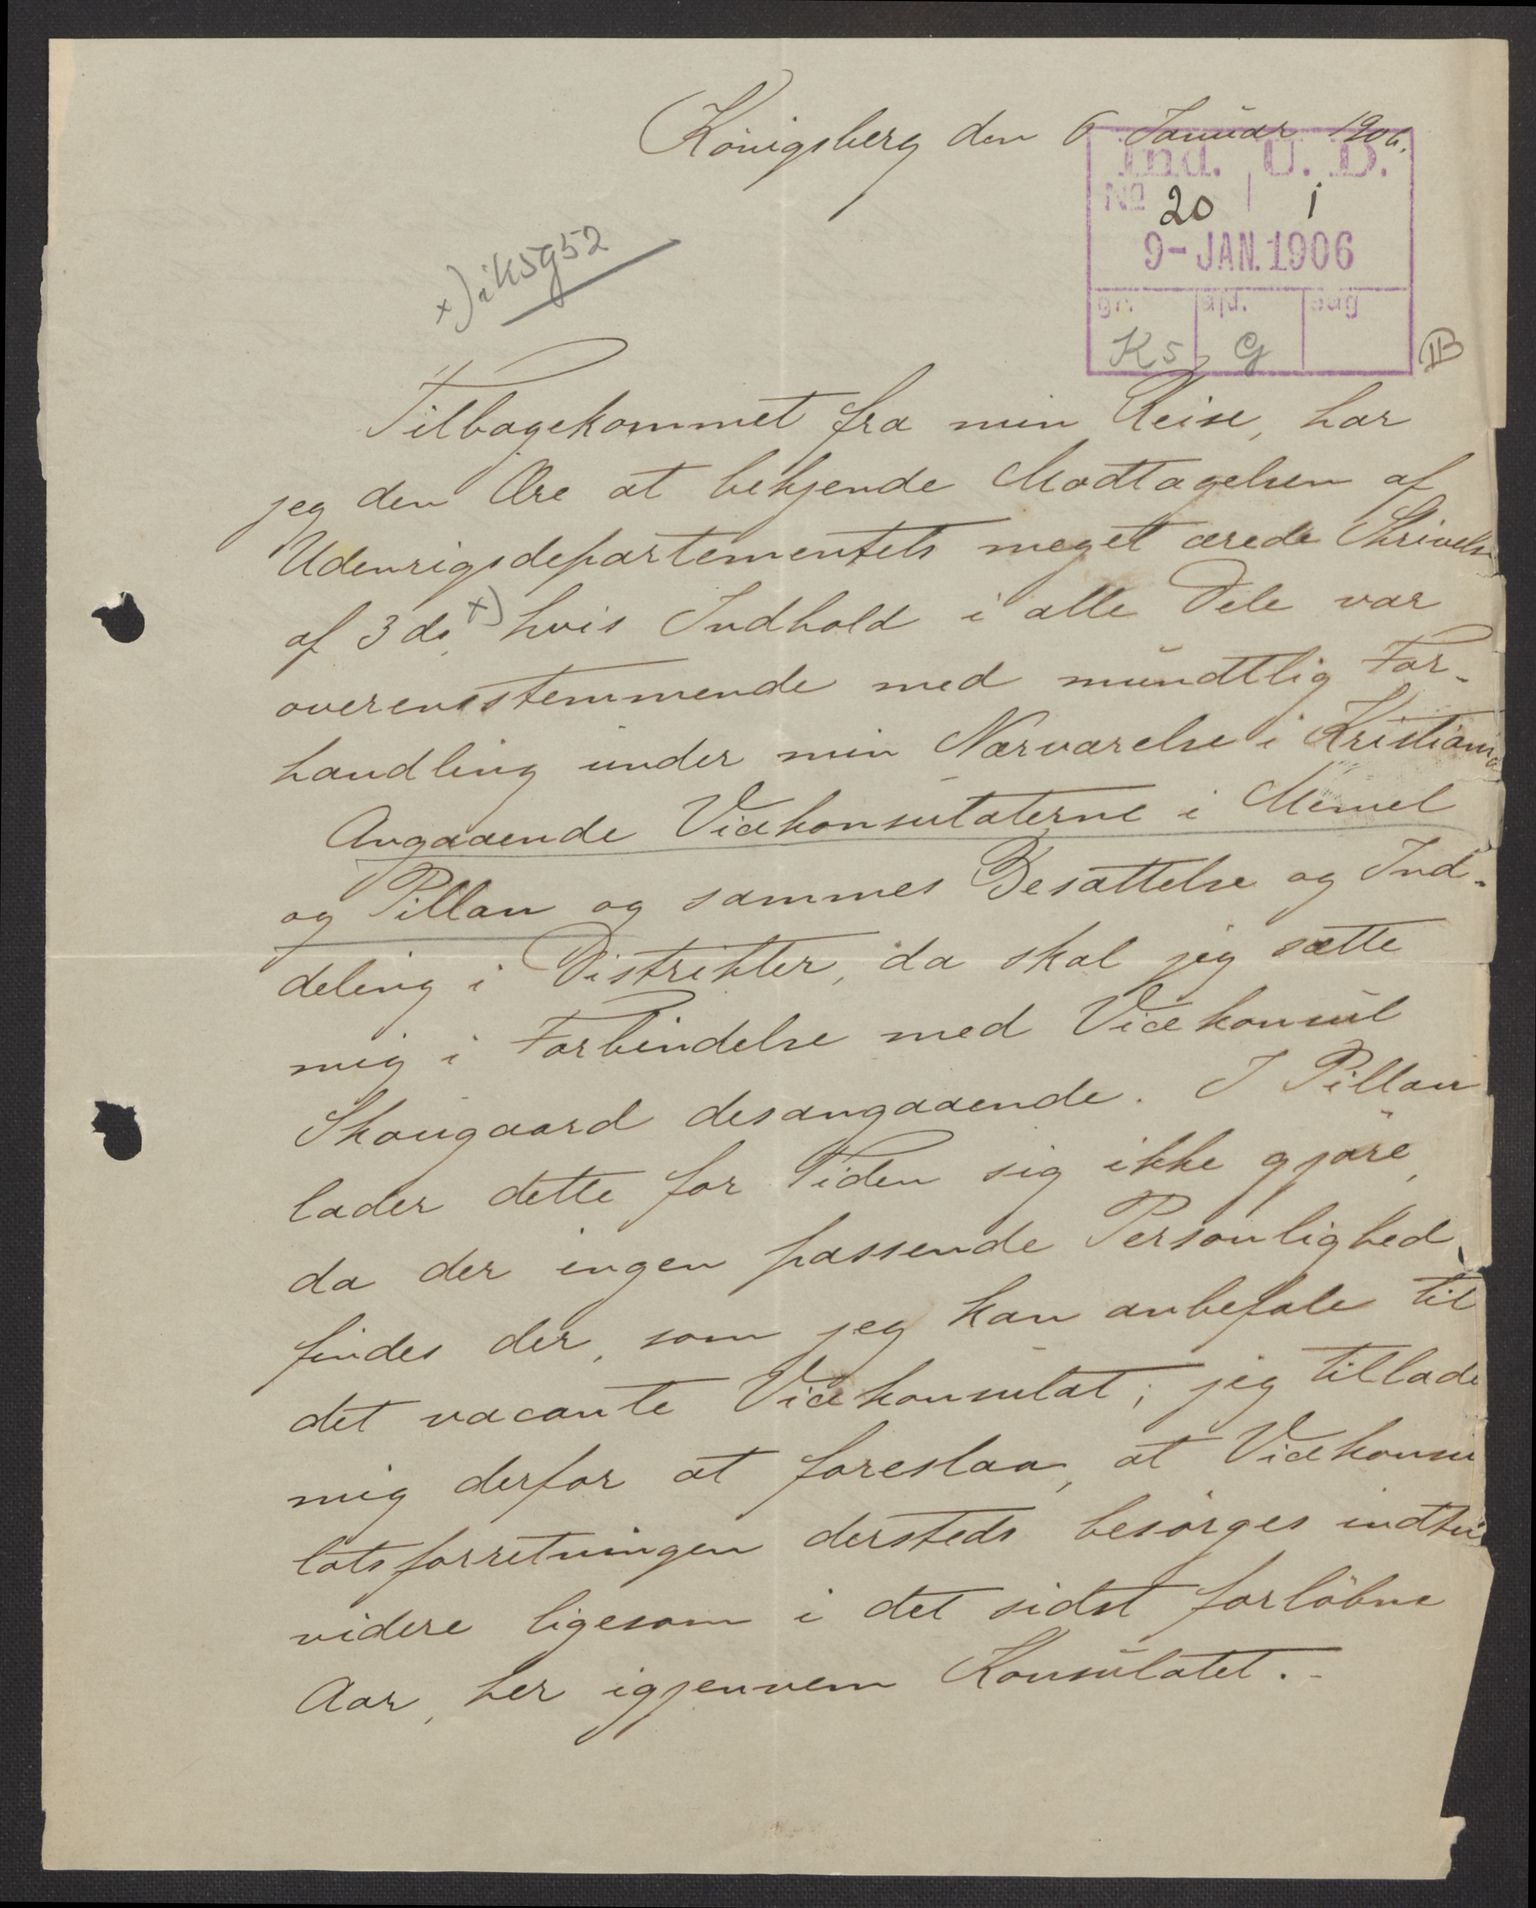 Königsberg den 6 Januar 1906.
Ind. U. D.
No 20 1
9-JAN.1906
gr. afd. sag
K5 G
IIB
x) i K5G52
Tilbagekommet fra min Reise, har
jeg den Ære at bekjende Modtagelsen af
Udenrigsdepartementets meget ærede Skrivelse
af 3 ds, x) hvis Indhold i alle Dele var
overensstemmende med mundtlig For-
handling under min Nærværelse i Kristiania
Angaaende Vicekonsulaterne i Memel
og Pillau og sammes Besættelse og Ind-
deling i Distrikter, da skal jeg sætte
mig i Forbindelse med Vicekonsul
Skougaard desangaaende. I Pillau
lader dette for Tiden sig ikke gjøre,
da der ingen passende Personlighed
findes der, som jeg kan anbefale til
det vacante Vicekonsulat; jeg tillader
mig derfor at foreslaa, at Vicekonsu
latsforretningen dersteds besørges indtil
videre ligesom i det sidst forløbne
Aar, her igjennem Konsulatet.-